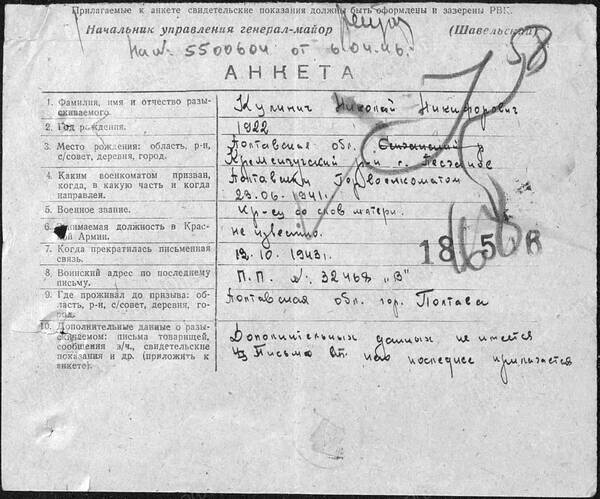 Прилагаемые к анкете свидетельские показания должны быть оформлены и заверены РВК.
Начальник управления генерал-майор (Шавельский)
На №: 5500604 от 6.04.46.
58
АНКЕТА
1. Фамилия, имя и отчество разыскиваемого. Кулинич Николай Никифорович
2. Год рождения. 1922
3. Место рождения: область, р-н, с/совет, деревня, город. Полтавская обл.
Кременчугский р-н
4. Каким военкоматом призван, когда, в какую часть и когда направлен. Полтавским Горвоенкоматом
23.06.1941г.
5. Военное звание. Кр-ец со слов матери.
6. Занимаемая должность в Красной Армии. не известно.
7. Когда прекратилась письменная связь. 12.10.1943г.
8. Воинский адрес по последнему письму. П.П. №: 32468 „В"
9. Где проживал до призыва: область, р-н, с/совет, деревня, город. Полтавская обл. гор. Полтава
10. Дополнительные данные о разыскиваемом: письма товарищей, сообщения в/ч., свидетельские показания и др. (приложить к анкете). Дополнительных данных не имется
Письмо последнее прилагается